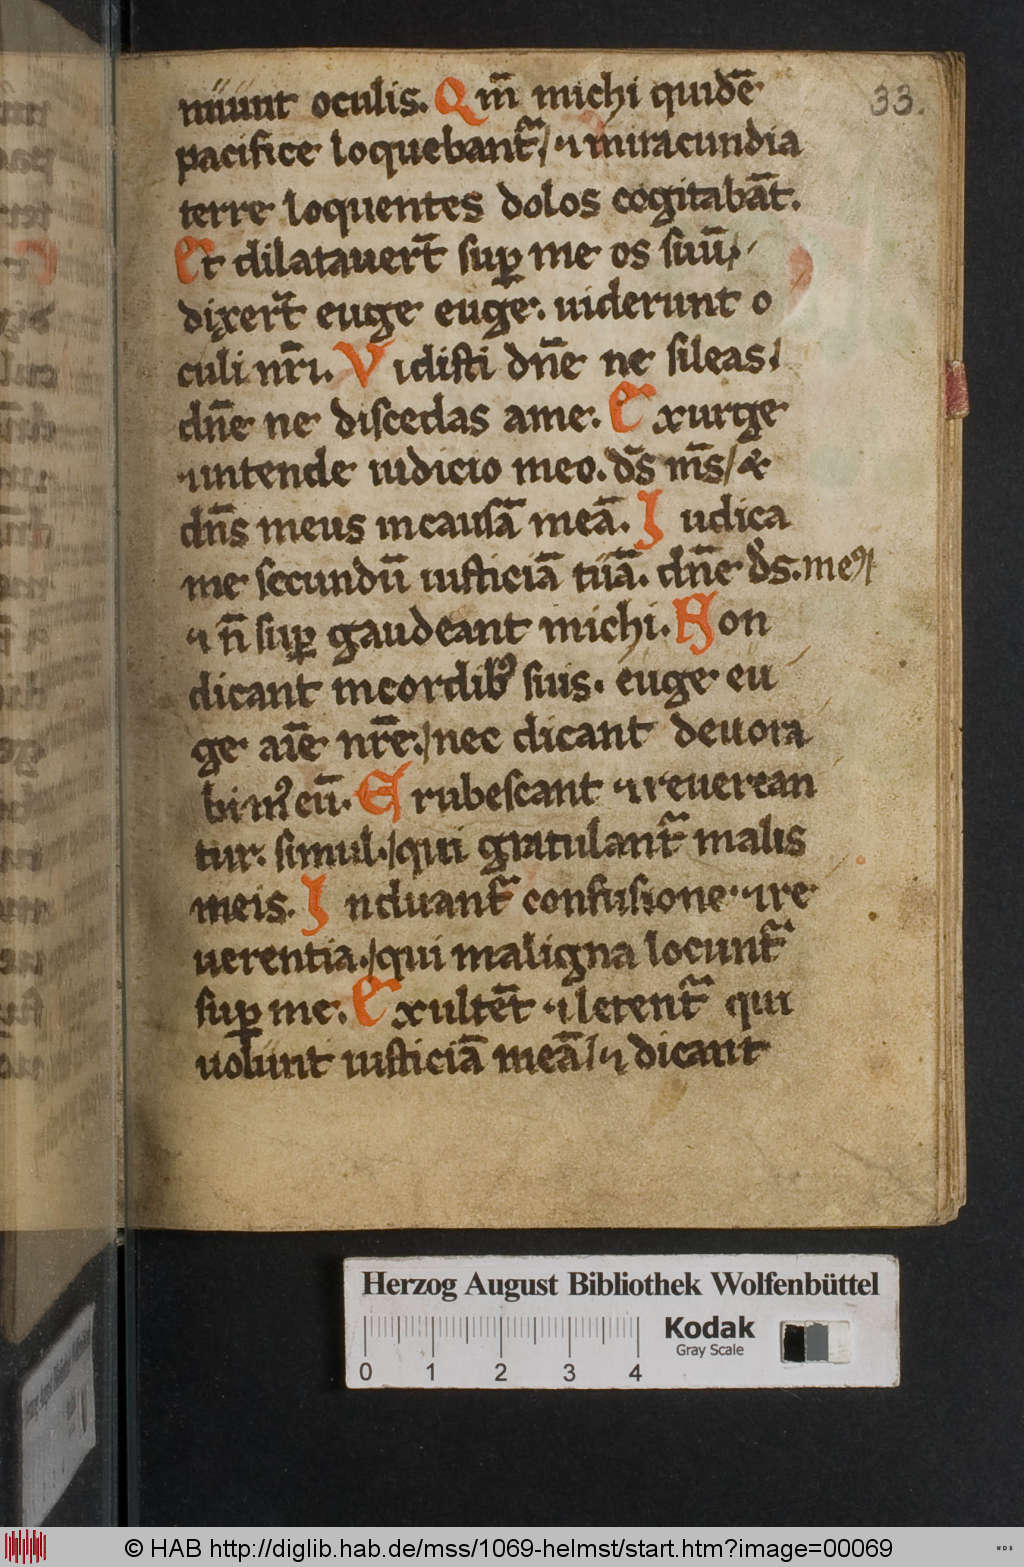 33.
nuunt oculis. Qm̄ michi quidē
pacifice loquebant᷑/ ⁊ in iracundia
terre loquentes dolos cogitabāt.
Et dilatauert̄ suꝑ me os suū/
dixert̄ euge euge. uiderunt o
culi nr̄i. Vidisti dn̄e ne sileas/
dn̄e ne discedas a me. Exurge
⁊ intende iudicio meo. ds̄ ms̄/ &
dn̄s meus in causā meā. Iudica
me secundū iusticiā tuā. dn̄e ds̄. meꝰ/
⁊ n̄ suꝑ gaudeant michi. Non
dicant in cordibꝰ suis. euge eu
ge aīe nr̄e./ nec dicant deuora
bimꝰ eū. Erubescant ⁊ reuerean
tur. simul./ qui gratulant᷑ malis
meis. Induant᷑ confusione ⁊ re
uerentia./ qui maligna locunt᷑
suꝑ me. Exultēt ⁊ letent᷑ qui
uolunt iusticiā meā/ ⁊ dicant
Herzog August Bibliothek Wolfenbüttel
Kodak
Gray Scale
0 1 2 3 4
© HAB http://diglib.hab.de/mss/1069-helmst/start.htm?image=00069